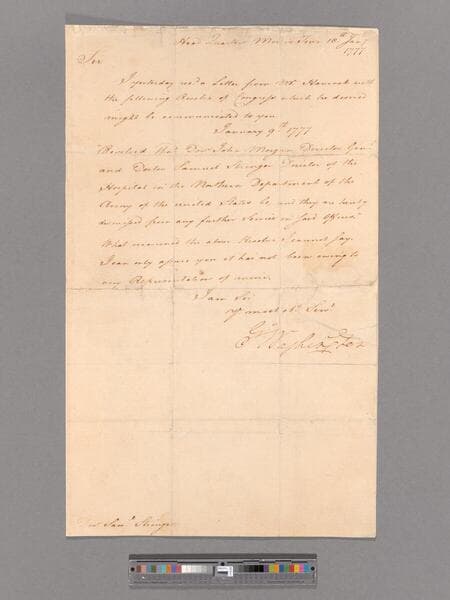 Head Quarters Morris Town 18th Jany
1777
Sir
I yesterday recd a Letter from Mr Hancock with
the following Resolve of Congress which he desired
might be communicated to you
January 9th 1777
"Resolved that Doctr John Morgan Director Genl
and Doctor Samuel Stringer Director of the
Hospital in the Northern Department of the
Army of the united States be, and they are hereby
dismissed from any further Service in said Offices"
What occasioned the above Resolve I cannot say.
I can only assure you it has not been owing to
any Representations of mine.
I am Sir
Yr most Obt Servt
Go Washington
Saml Stringer